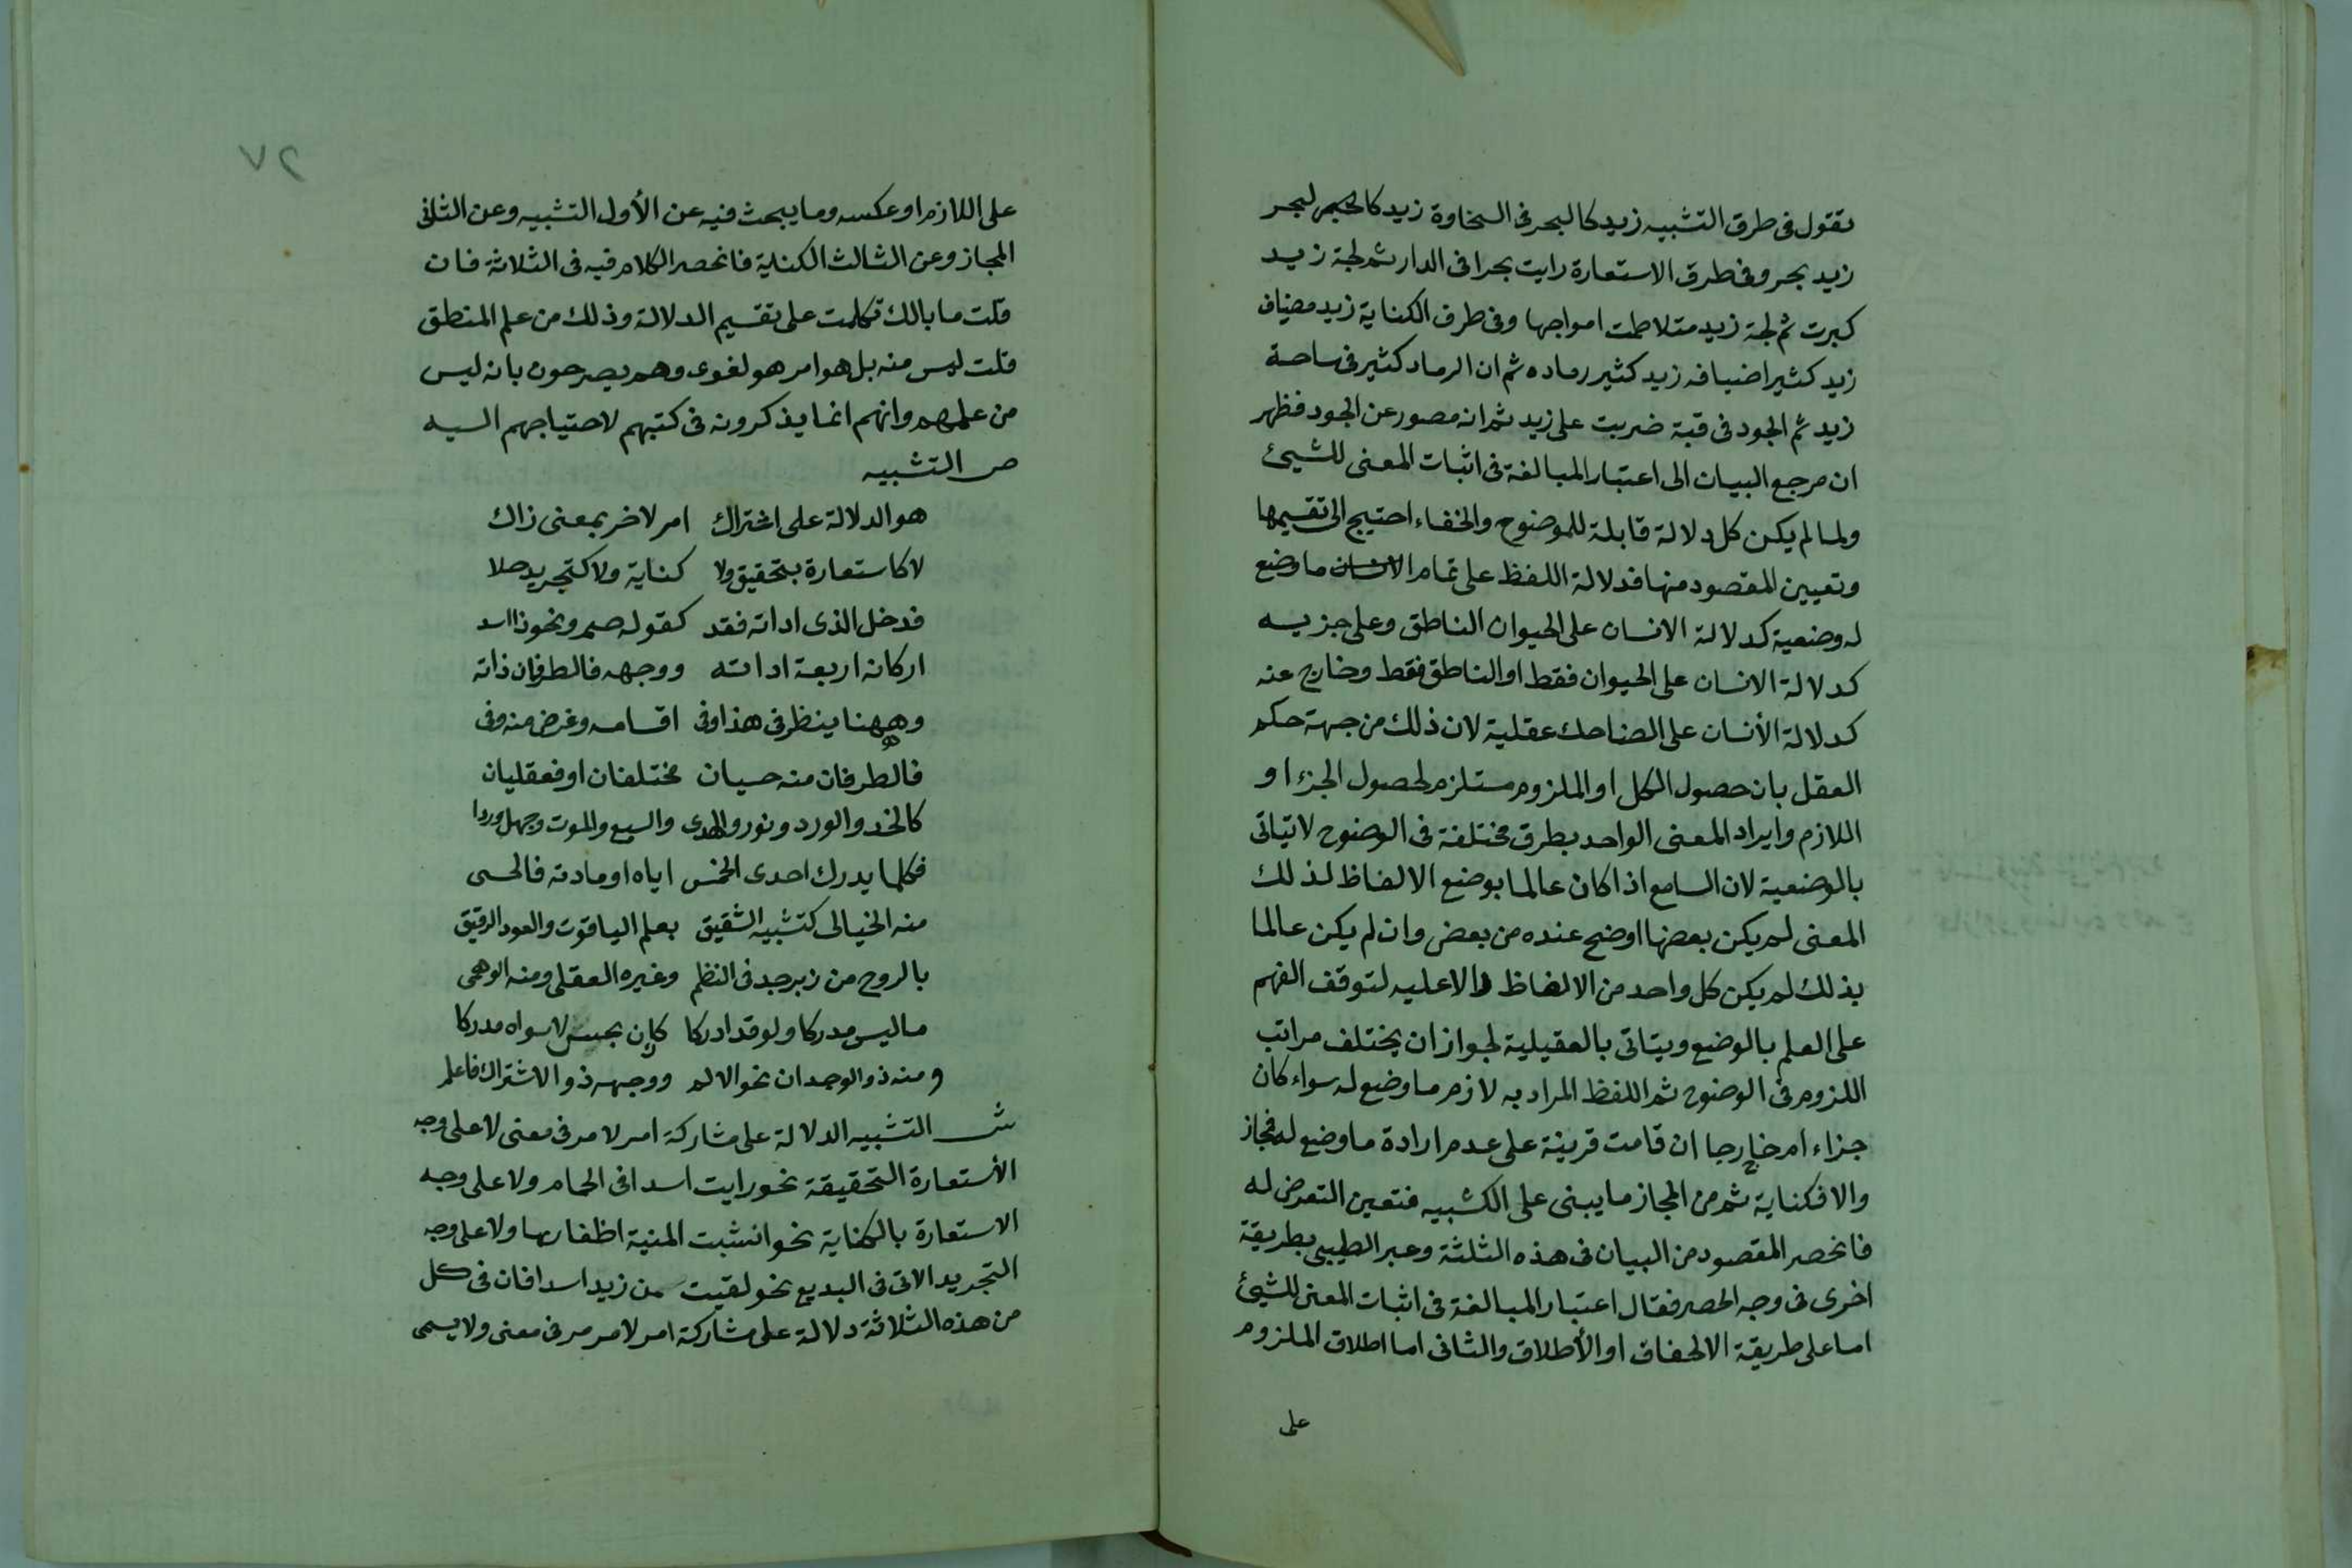 تقول فى طرق التشبيه زيد كالبحر فى السخاوة زيد كالبحر
زيد بحر وفى طرق الاستعارة رايت بحرا فى الدار ثم لجة زيد
كبرت ثم لجة زيد متلاطمت امواجها وفى طرف الكناية زيد مضياف
زيد كثير اضيافه زيد كثير رماده ثم ان الرماد كثير فى ساحة
زيد ثم الجود فى قبة ضربت على زيد ثم انه مصور عن الجود فظهر
ان مرجع البيان الى اعتبار المبالغة فى اثبات المعنى للشيئ
ولما لم يكن كل دلالة قابلة للموضوح والخفاء احتيج الى تقسيمها
وتعيين المقصود منها فدلالة اللفظ على تمام ما وضع
له وضعية كدلالة الانسان على الحيوان الناطق وعلى جزيه
كدلالة الانسان على الحيوان فقط او الناطق فقط وخارج عنه
كدلالة الأنسان على الضاحك عقلية لان ذلك من جهة حكم
العقل بان حصول الكل او الملزوم مستلزم لحصول الجزء او
اللازم وايراد المعنى الواحد بطرق مختلفة فى الوضوح لايتاتى
بالوضعية لان السامع اذا كان عالما بوضع الالفاظ لذلك
المعنى لم يكن بعضها اوضح عنده من بعض وان لم يكن عالما
بذلك لم يكن كل واحد من الالفاظ دالا عليه لتوقف الفهم
على العلم بالوضع ويتاتى بالعقيلية لجواز ان يختلف مراتب
اللزوم فى الوضوح ثم اللفظ المراد به لازم ما وضع له سواء كان
جزاء ام خارجا ان قامت قرينة على عدم ارادة ما وضع له فمجاز
والا فكناية ثم من المجاز ما يبنى على الكشبيه فتعين التعرض له
فانحصر المقصود من البيان فى هذه الثلثة وعبر الطيبى بطريقة
اخرى فى وجه الحصر فقال اعتبار المبالغة فى اثبات المعنى للشيئ
اما على طريقة الالحاق او الأطلاق والثانى اما اطلاق الملزوم
على
٢٧
على اللازم او عكسه وما يبحث فيه عن الأول التشبيه وعن الثانى
المجاز وعن الثالث الكناية فانحصر الكلام فيه فى الثلاثة فان
قلت ما بالك تكلمت على تقسيم الدلالة وذلك من علم المنطق
قلت ليس منه بل هو امر هو لغوى وهم يصرحون بانه ليس
من علمهم وانهم انما يذكرونه فى كتبهم لاحتياجهم اليه
ص التشبيه
هو الدلالة على اشتراك امر لاخر بمعنى زاك
لا كاستعارة بتحقيق ولا كناية ولا كتجريد حلا
فدخل الذى اداته فقد كقوله صم ونحو ذا اسد
اركانه اربعة اداته ووجهه فالطرفان ذاته
وههنا ينظر فى هذا وفى اقسامه وغرض منه وفى
فالطرفان منه حسيان مختلفان او فعقليان
كالخد والورد ونور والهدى والسبع والموت وجهل وردا
فكلما يدرك احدى الخمس اياه او مادته فالحسى
منه الخيالى كتشبيه الشقيق بعلم الياقوت والعود الرقيق
بالروح من زبرجد فى النظم وغيره العقلى ومنه الوهمى
ماليس مدركا ولو قد ادركا كان بحس لا سواه مدركا
ومنه ذو الوجدان نحو الالم ووجهه ذو الاشتراك فاعلم
ش التشبيه الدلالة على مشاركة امر لامر فى معنى لا على وجه
الأستعارة التحقيقة نحو رايت اسدا فى الحمام ولا على وجه
الاستعارة بالكناية نحو انشبت المنية اظفارها ولا على وجه
التجريد الاتى فى البديع نحو لقيت من زيد اسدا فان فى كل
من هذه الثلاثة دلالة على مشاركة امر لامر مر فى معنى ولا يسمى